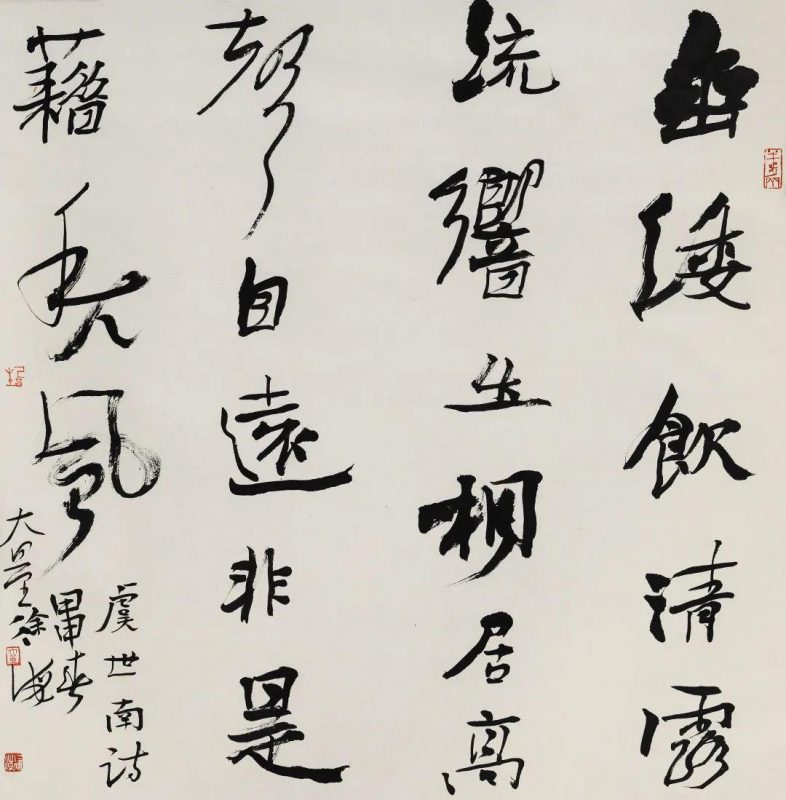 垂緌飲清露
流響出桐居高
聲自遠非是
藉秋風
虞世南詩
甲申春
大徐